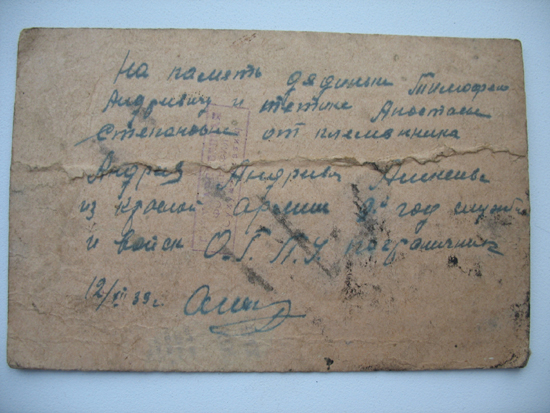 На память дядиньки Тимофею
Андривичу и тётике Анастаси
Степановни от племянника
Андрия Андривя
из красной армии 2й год служб
и войск О.Г.П.У. пограничник
12/ 33 г.